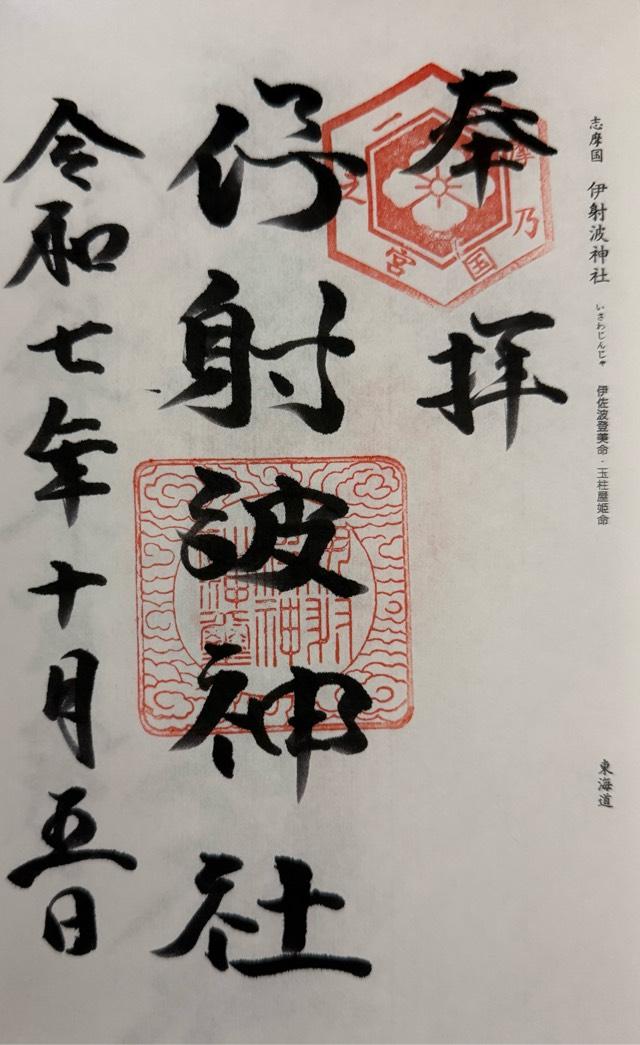 志摩国 伊射波神社 いさわじんじゃ 伊佐波登美命・玉柱屋姫命
東海道
奉拝
摩乃国一之宮
伊射波神社
令和七年十月五日